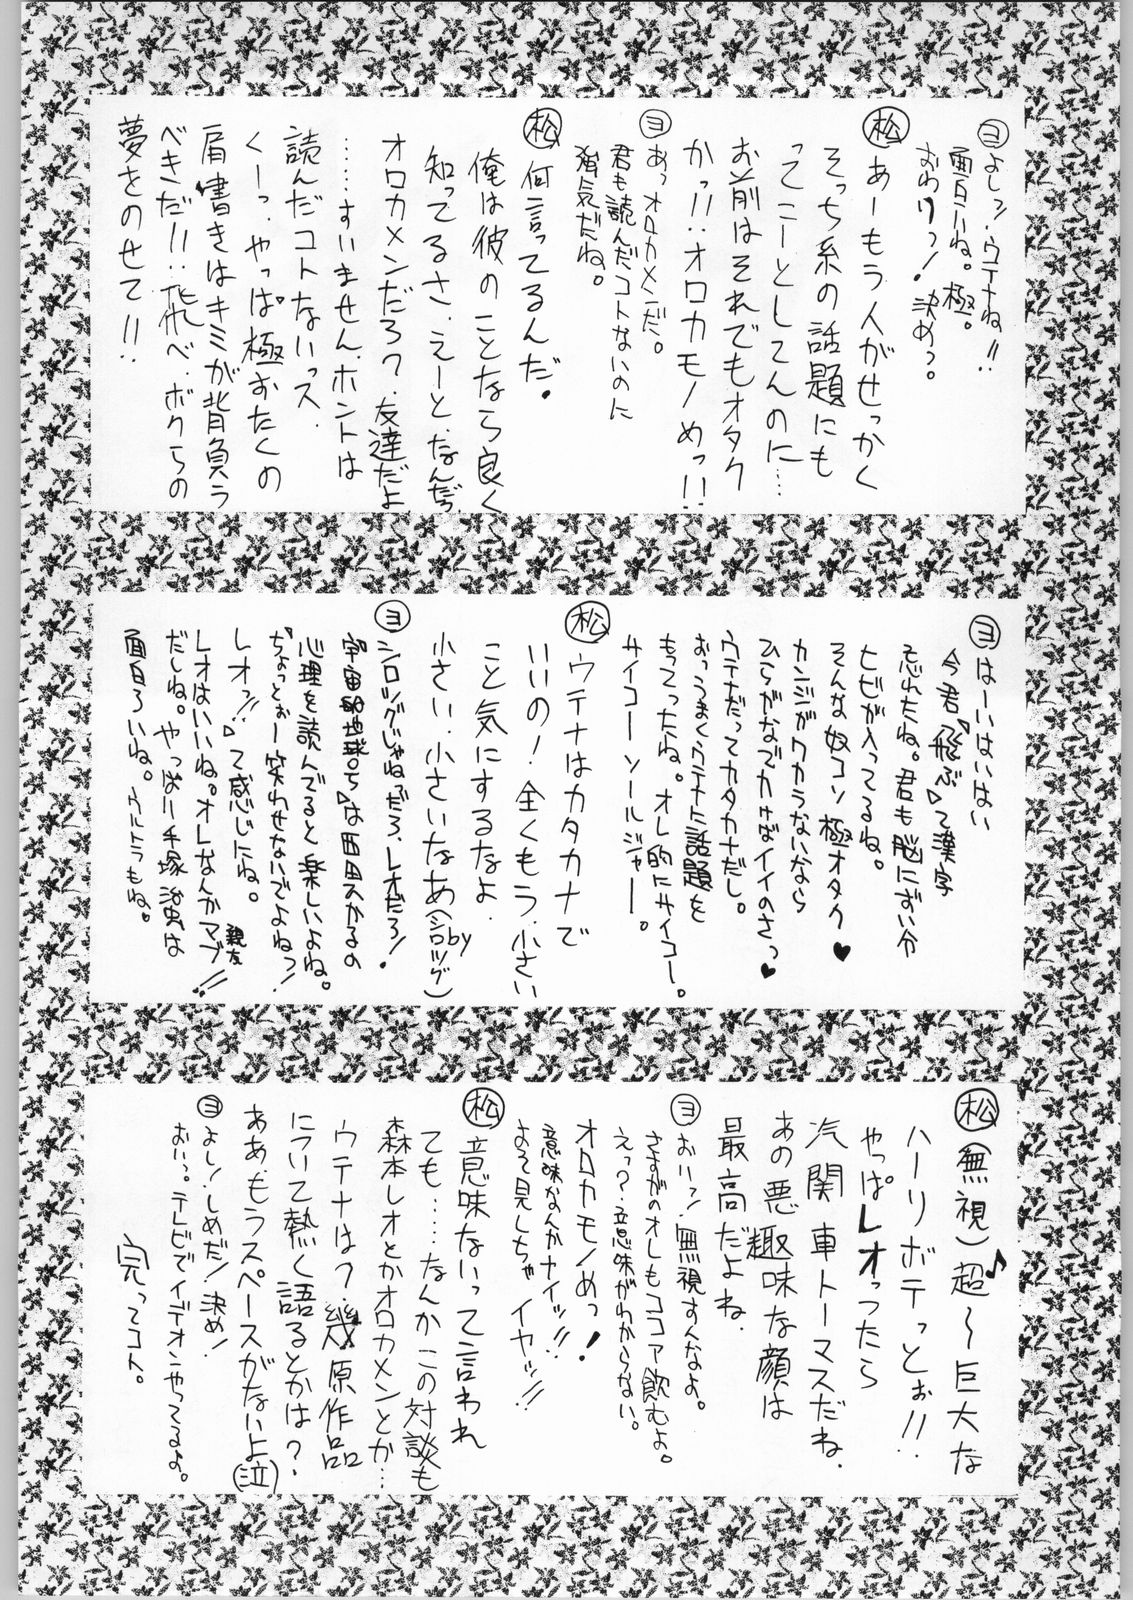 ヨ よしッ!ウテナね!!
面白いね。極。
おわりっ!決めっ。
松 あーもう人がせっかく
そっち系の話題にも
ってこーとしてんのに……
お前はそれでもオタク
かっ!!‥オロカモノめっ!!
ヨ あっオロカメンだ。
君も読んだコトないのに
強気だね。
松 何言ってるんだ。
俺は彼のことなら良く
知ってるさ.えーと.なんだっ
オロカメンだろ?.友達だよ
……すいません.ホントは
読んだコトないっス.
くーっ.やっぱ極おたくの
肩書きはキミが背負う
べきだ!!‥飛べ.ボクらの
夢をのせて!!‥
ヨ はーいはいはい
今君『飛ぶ』って漢字
忘れたね。君も脳にずい分
ヒビが入ってるね。
そんな奴コソ極オタク♥
カンジがワカラないなら
ひらがなでかけばイイのさっ♥
ウテナだってカタカナだし。
おっうまくウテナに話題を
もってったね。オレ的にサイコー。
サイコーソールジャー。
松 ウテナはカタカナで
いいの!全くもう.小さい
こと気にするなよ.
小さい.小さいなあ(byシロッグ)
ヨ シロッグじゃねぇだろ、レオだろ!
『宇宙船地球号』は西田さかるの
心理を読んでると楽しいよね。
『ちょっとぉー笑わせないでよねっ!
レオッ!!』って感じにね。
レオはいいね。オレなんかマブ親友!!
だしね。やっぱ手塚治虫は
面白ろいね。ウルトラもね。
松 (無視)超〜♪巨大な
ハーリボテっとぉ!!‥
やっぱレオっつたら
汽関車トーマスだね.
あの悪趣味な顔は
最高だよね.
ヨ おいッ!無視すんなよ。
さすがのオレもココア飲むよ。
えっ?意味がわからない。
オロカモノめっ!
意味なんかナイッ!!
よって見しちゃイヤッ!!
松 意味ないって言われ
ても……なんかこの対談も
森本レオとかオロカメンとか…
ウテナは?.幾原作品
について熱く語るとかは?.
ああ.もうスペースがないよ(泣)
ヨ よし!しめだ!決め!
おいっ。テレビでイデオンやってるよ。
完ってコト。